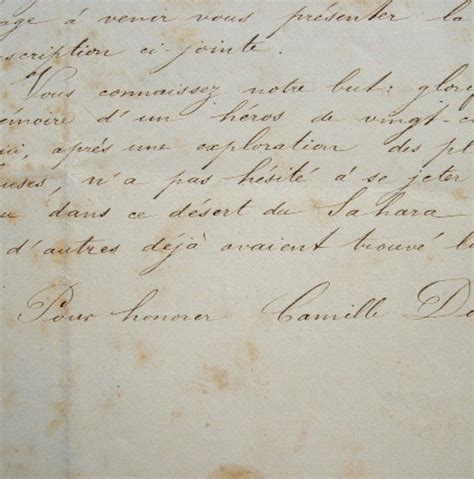 age à venir vous présenter la
scription ci-jointe.
Vous connaissez notre but: glori
émoire d'un héros de vingt-ci
ui, après une exploration des pl
uses, n'a pas hésité à se jeter
u dans ce désert du Sahara
d'autres déjà avaient trouvé la
Pour honorer Camille Do